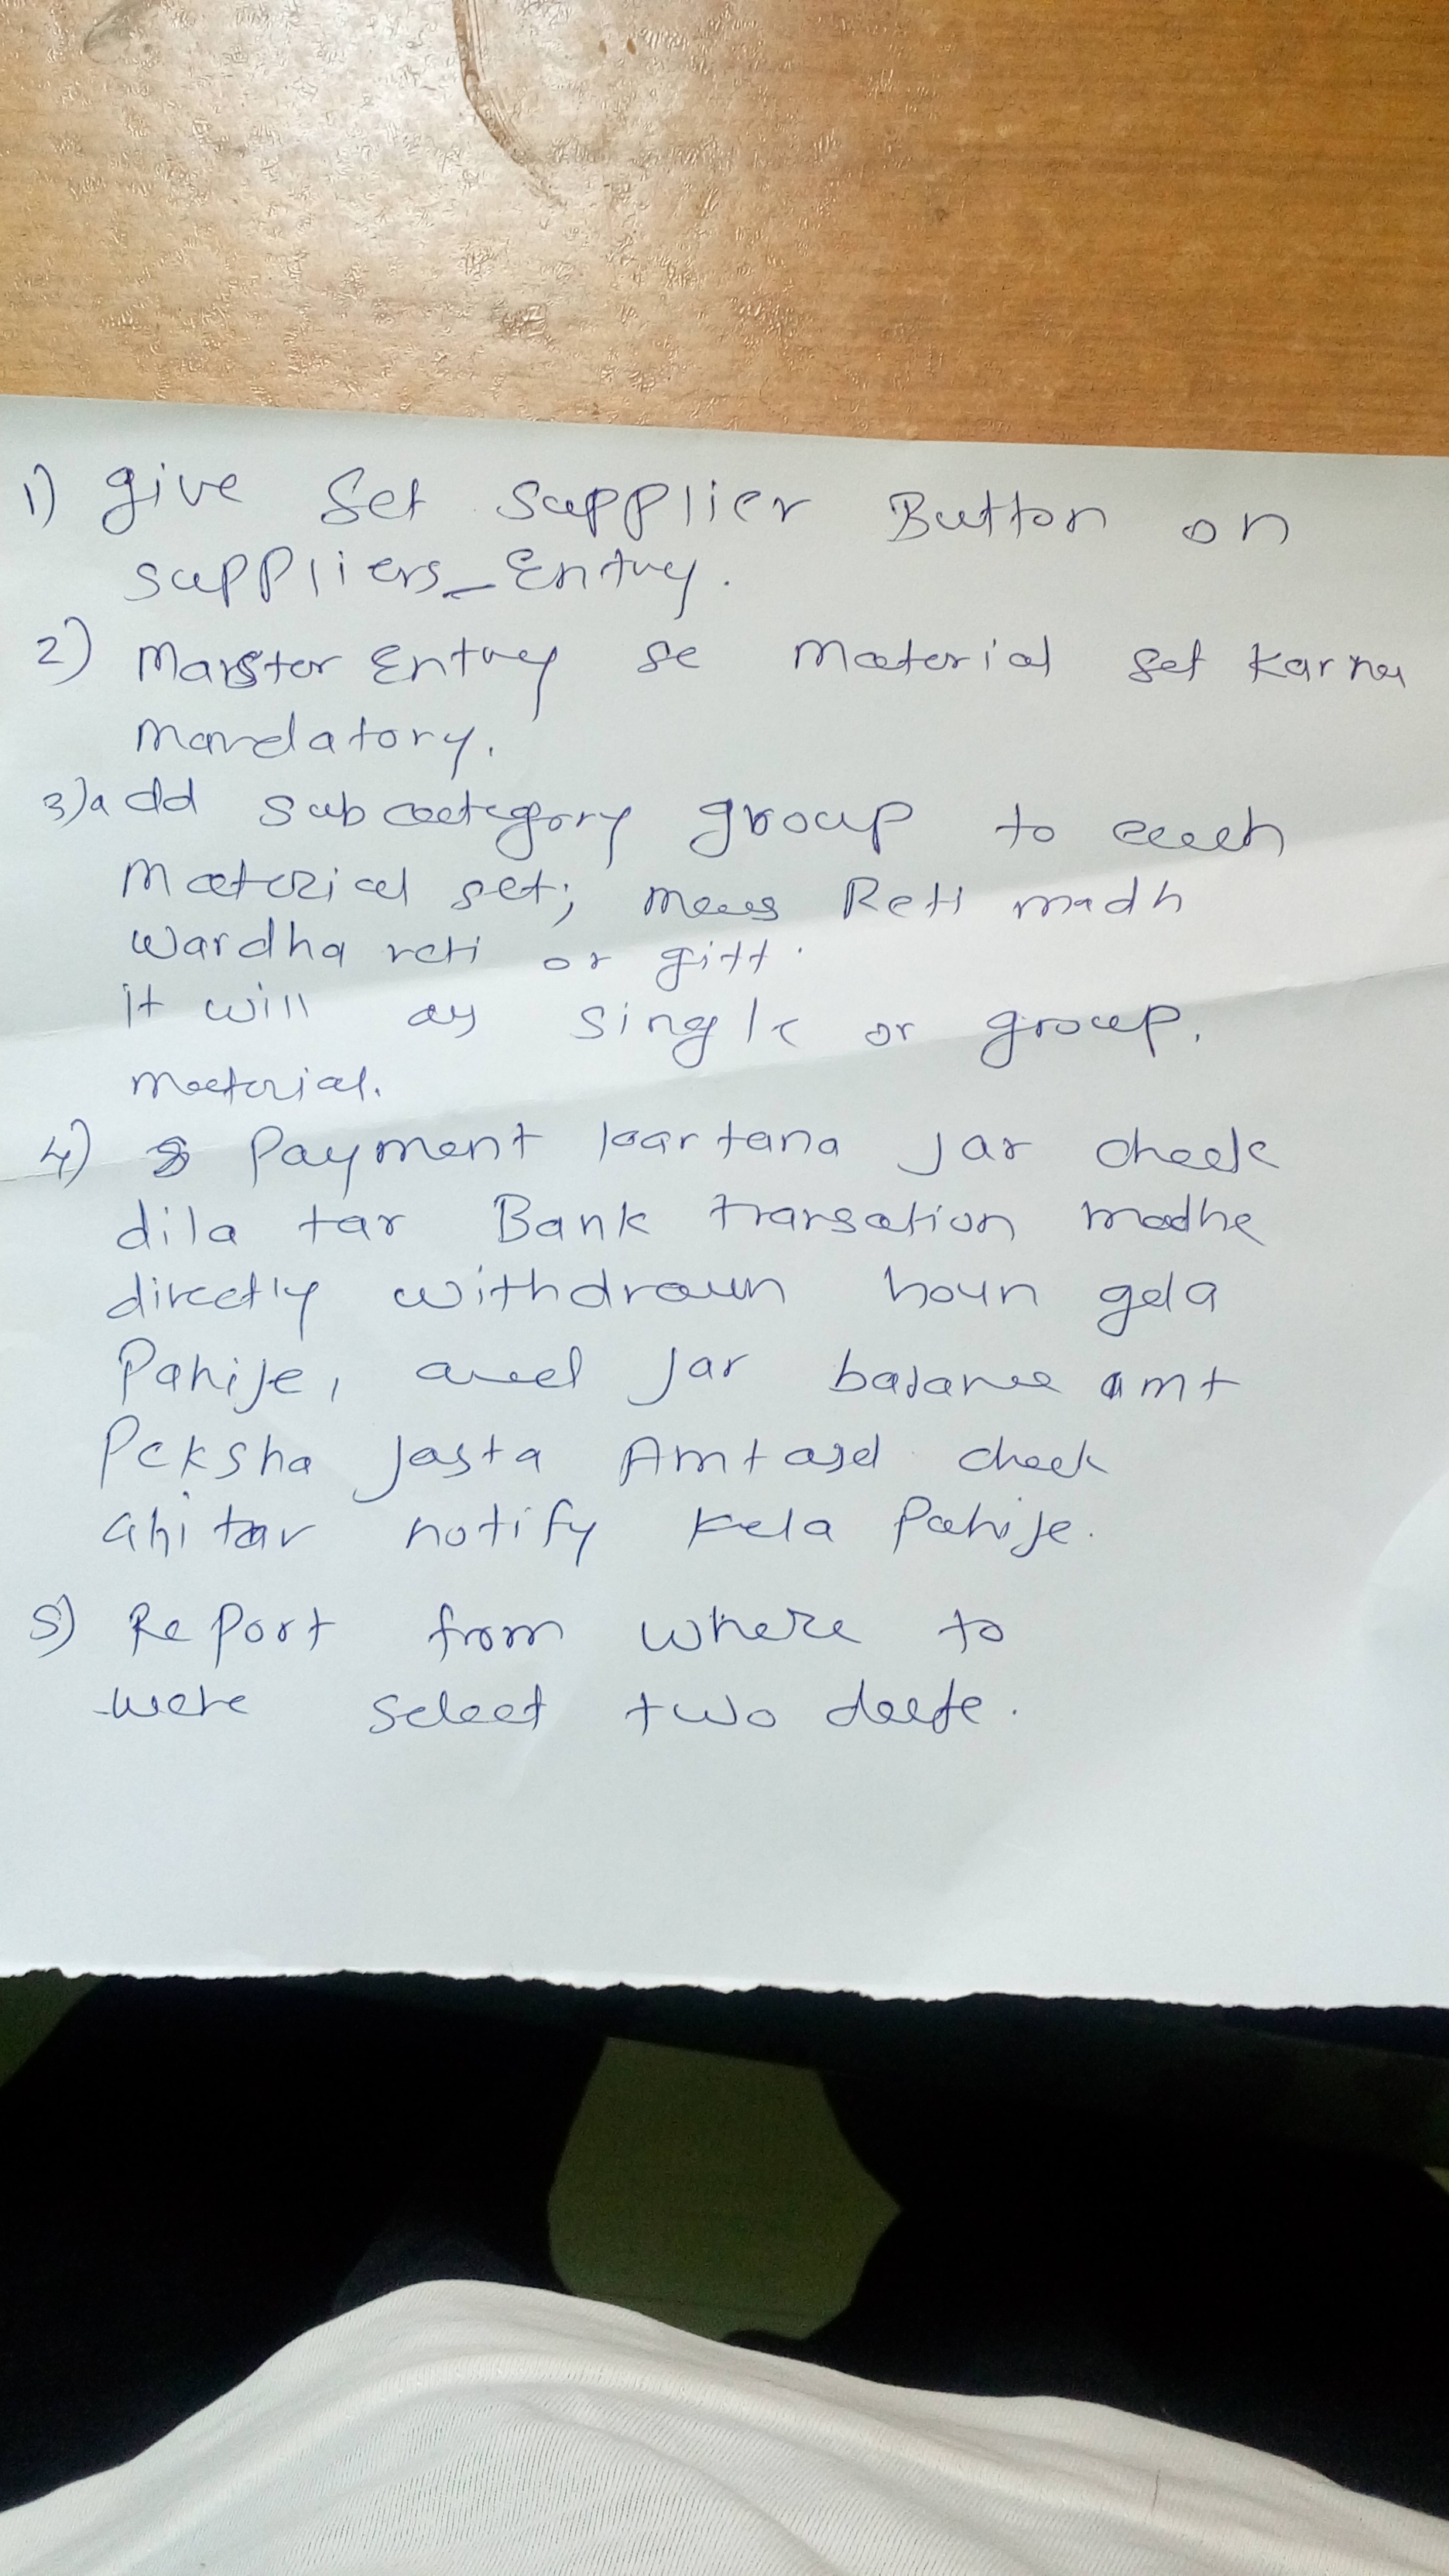 1) give Set Supplier Button on
Suppliers_Entry.
2) Master Entry se material set karna
mandatory.
3) add subcategory group to each
Material set; means Reti madh
Wardha reti or gitt.
it will as single or group.
material.
4) Payment kartana jar check
dila tar Bank transation madhe
directly withdrawn houn gela
Pahije, and jar balance amt
Peksha jasta Amt asel check
ahi tar notify kela Pahije.
5) Report from where to
were select two date.